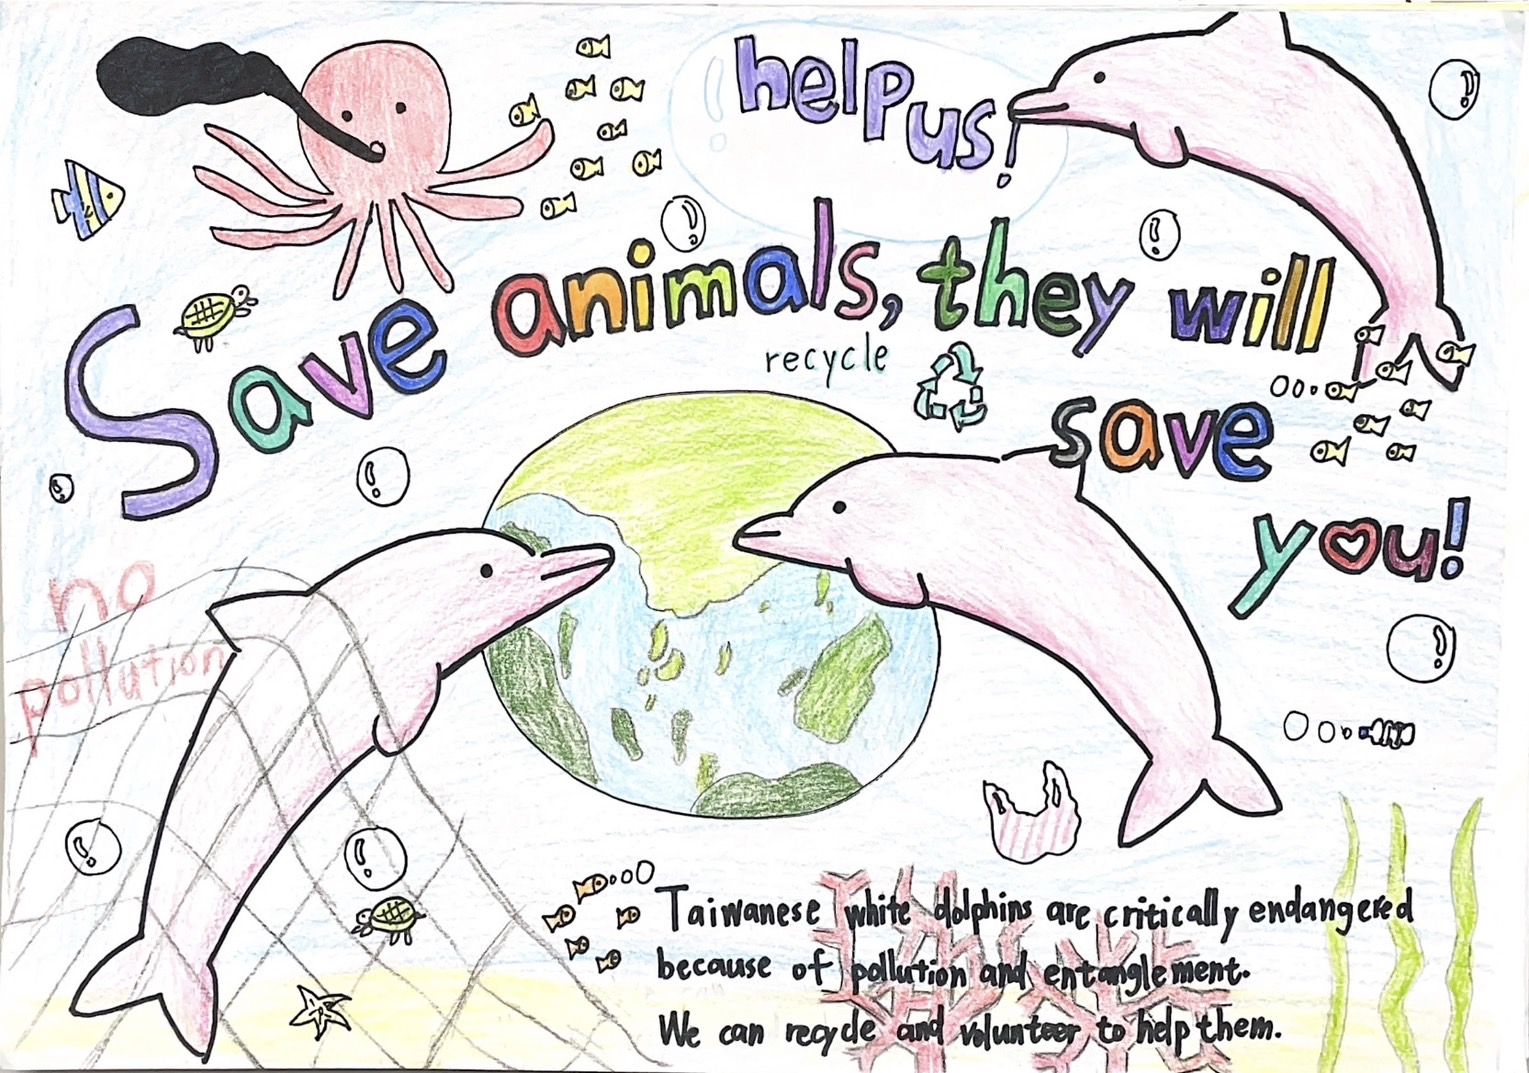 help us!
Save animals, they will
save
you!
recycle
no
pollution
Taiwanese white dolphins are critically endangered
because of pollution and entanglement.
We can recycle and volunteer to help them.